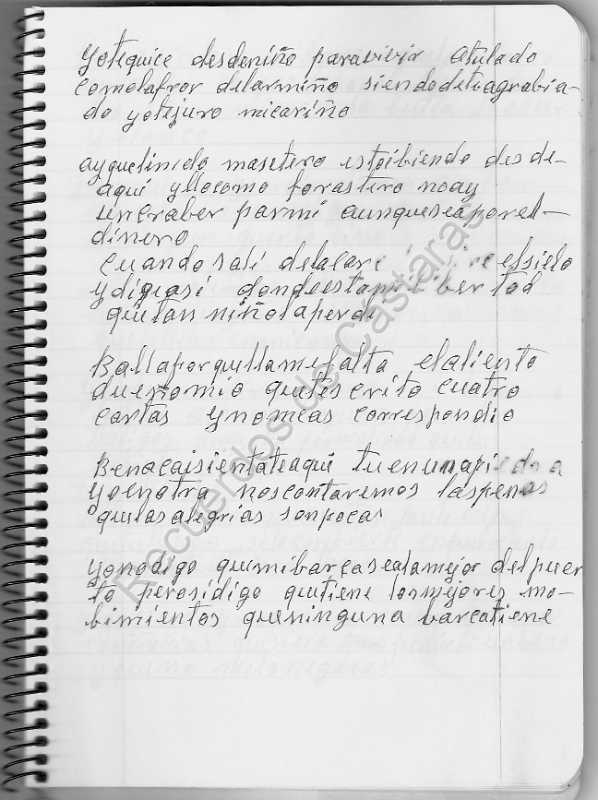 yotequice desdeniño paravivir atulado
comolafror delarmiño siendodetiagrabia-
do yotejuro micariño
ayquelinido masetero estoibiendo desde-
aqui yllocomo forastero noay
uncraber parmi aunqueseaporel-
dinero
cuandosali delacare elsielo
ydiguasi dondeestamilibertad
quetan niñolaperdi
Ballaporquellamefalta elaliento
duenomio queteescrito cuatro
cartas ynomeas correspondio
Benacaisientateaqui tuenunapiedra
yoenotra noscontaremos laspenas
quelasalegrias sonpocas
yonodigo quemibarcasealamejor delpuer
to perosidigo quetiene losmejores mo-
bimientos queninguna barcatiene
Recuerdos de Castaras